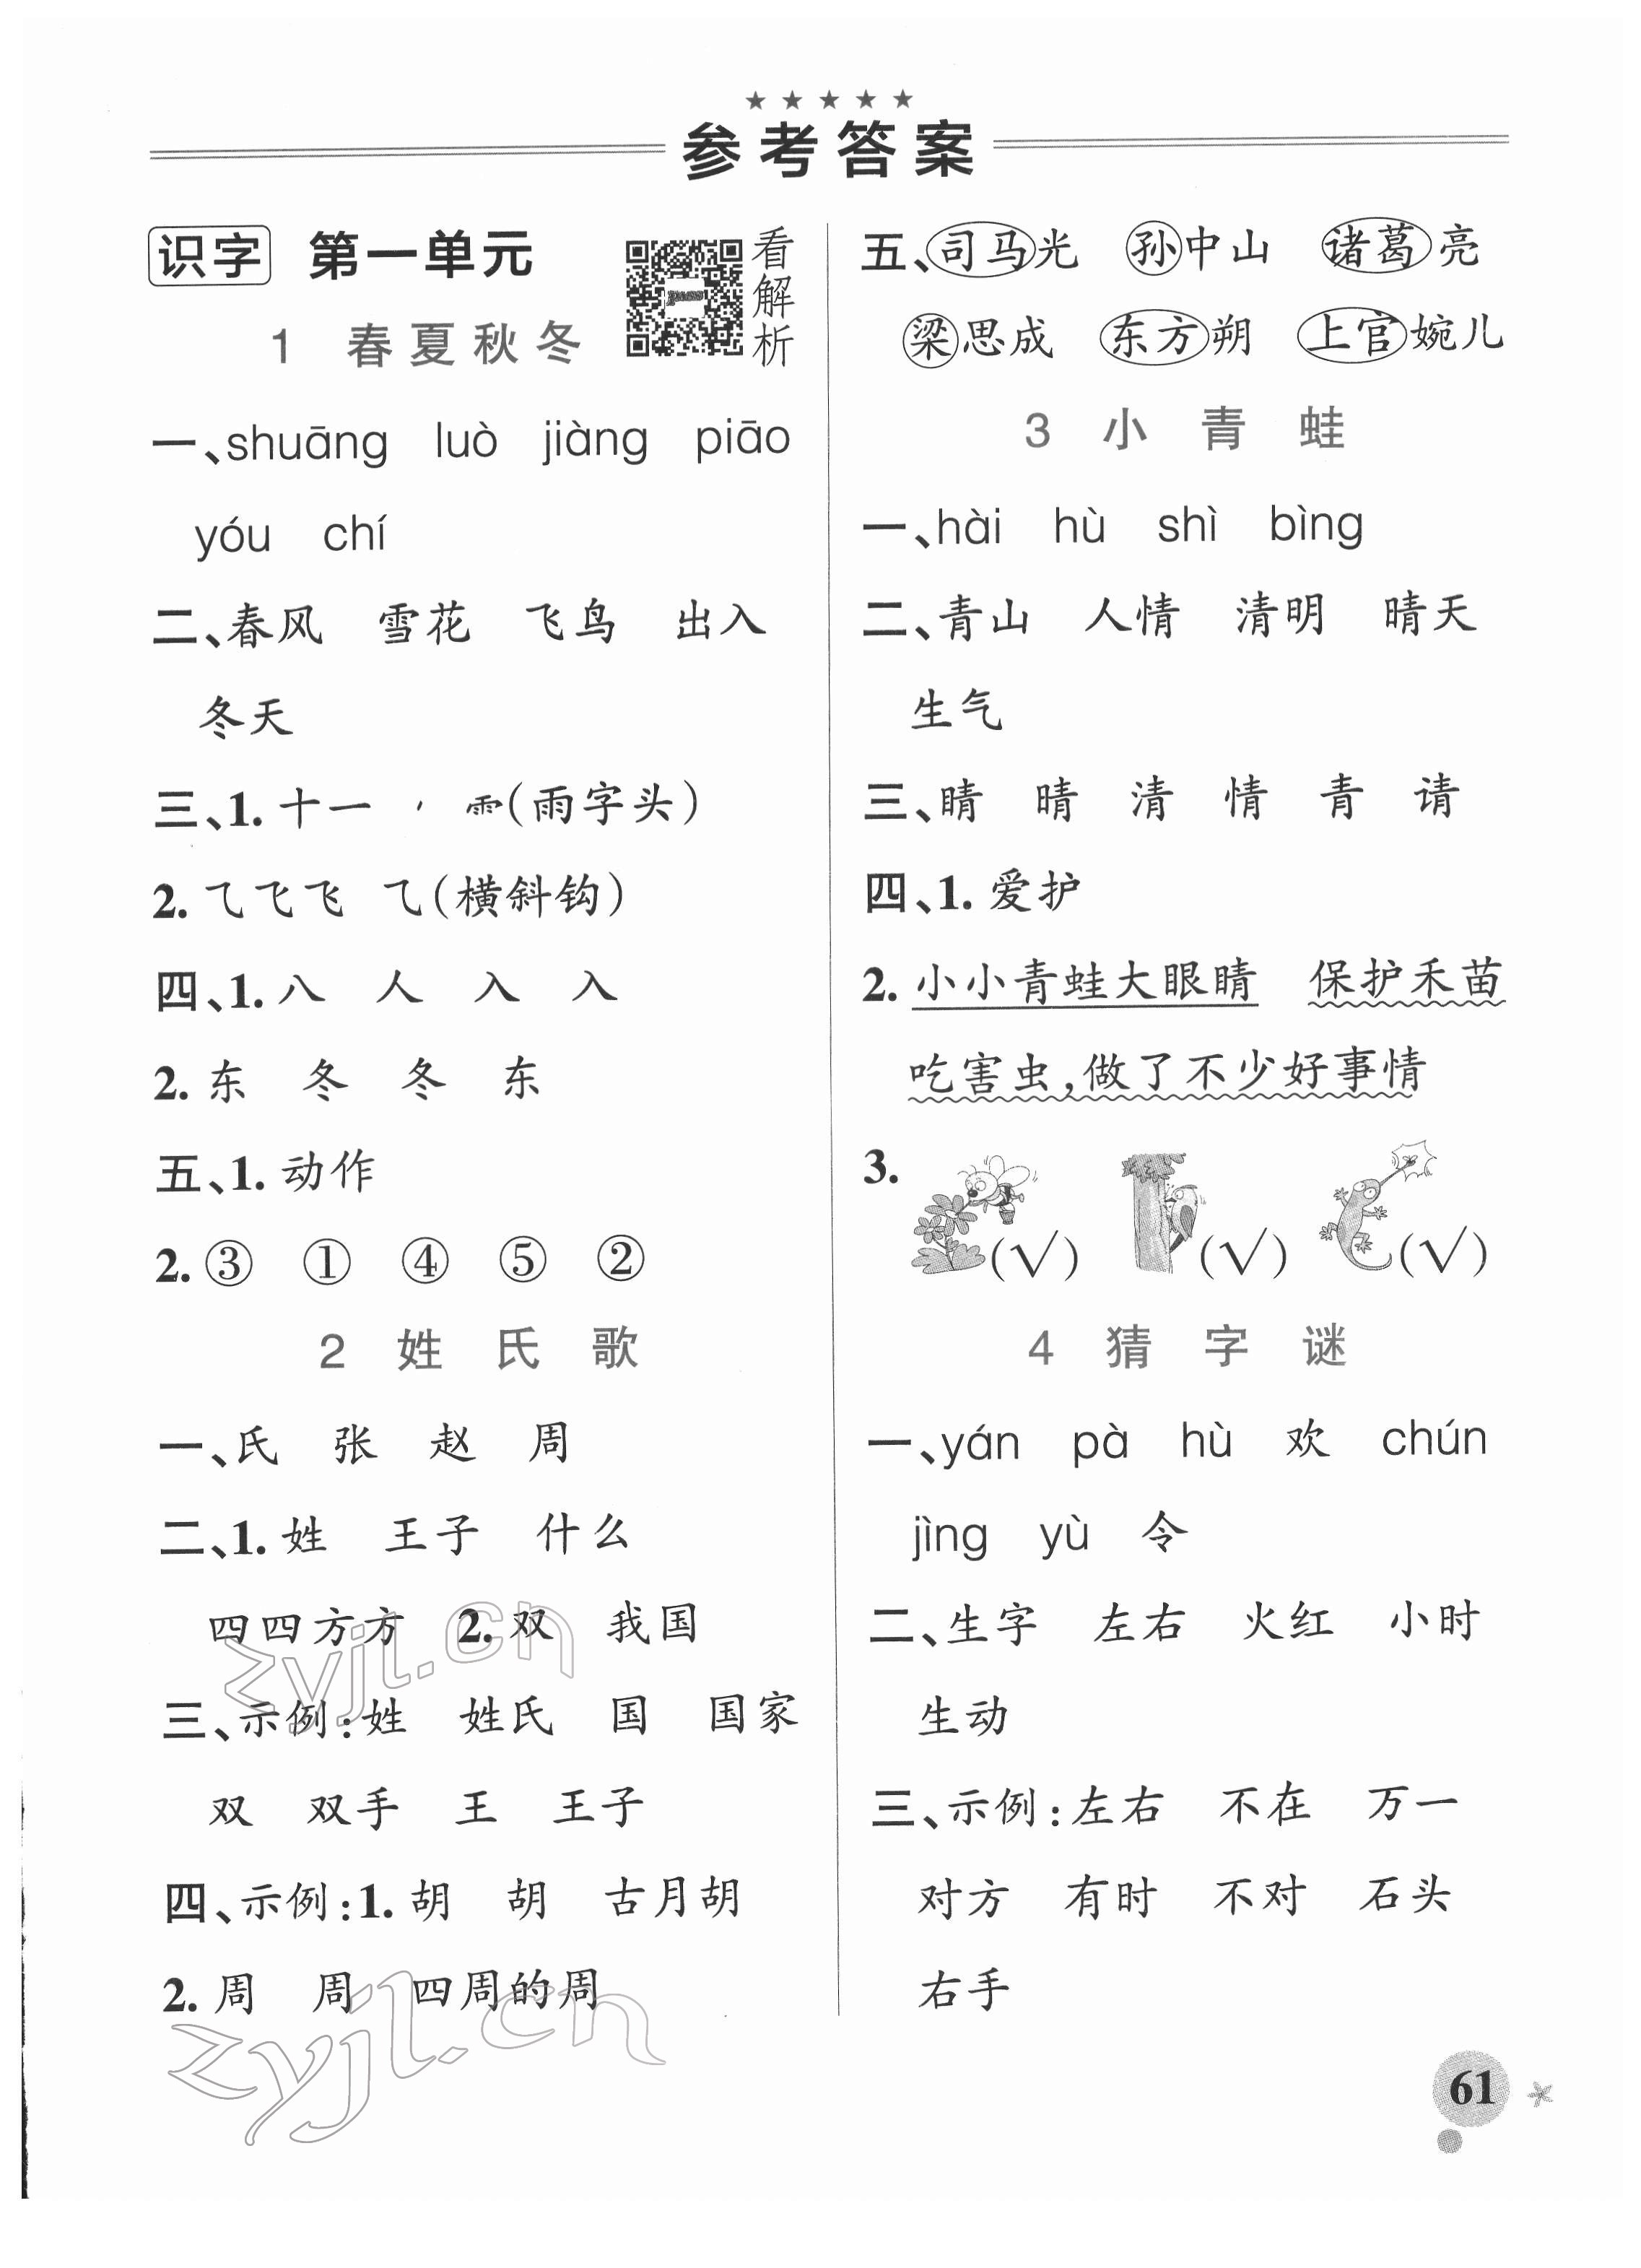 ★ ★ ★ ★ ★
参考答案
识字 第一单元
看解析
1 春夏秋冬
一、shuāng luò jiàng piāo
yóu chí
二、春风 雪花 飞鸟 出入
冬天
三、1. 十一 (雨字头)
2. 飞 ⺄(横斜钩)
四、1. 八 人 入 入
2. 东 冬 冬 东
五、1. 动作
2. ③ ① ④ ⑤ ②
2 姓氏歌
一、氏 张 赵 周
二、1. 姓 王子 什么
四四方方 2. 双 我国
三、示例:姓 姓氏 国 国家
双 双手 王 王子
四、示例:1. 胡 胡 古月胡
2. 周 周 四周的周
五、司马光 孙中山 诸葛亮
梁思成 东方朔 上官婉儿
3 小青蛙
一、hài hù shì bìng
二、青山 人情 清明 晴天
生气
三、睛 晴 清 情 青 请
四、1. 爱护
2. 小小青蛙大眼睛 保护禾苗
吃害虫,做了不少好事情
3. (√) (√) (√)
4 猜字谜
一、yán pà hù 欢 chún
jìng yù 令
二、生字 左右 火红 小时
生动
三、示例:左右 不在 万一
对方 有时 不对 石头
右手
61
zyjl.cn
zyjl.cn